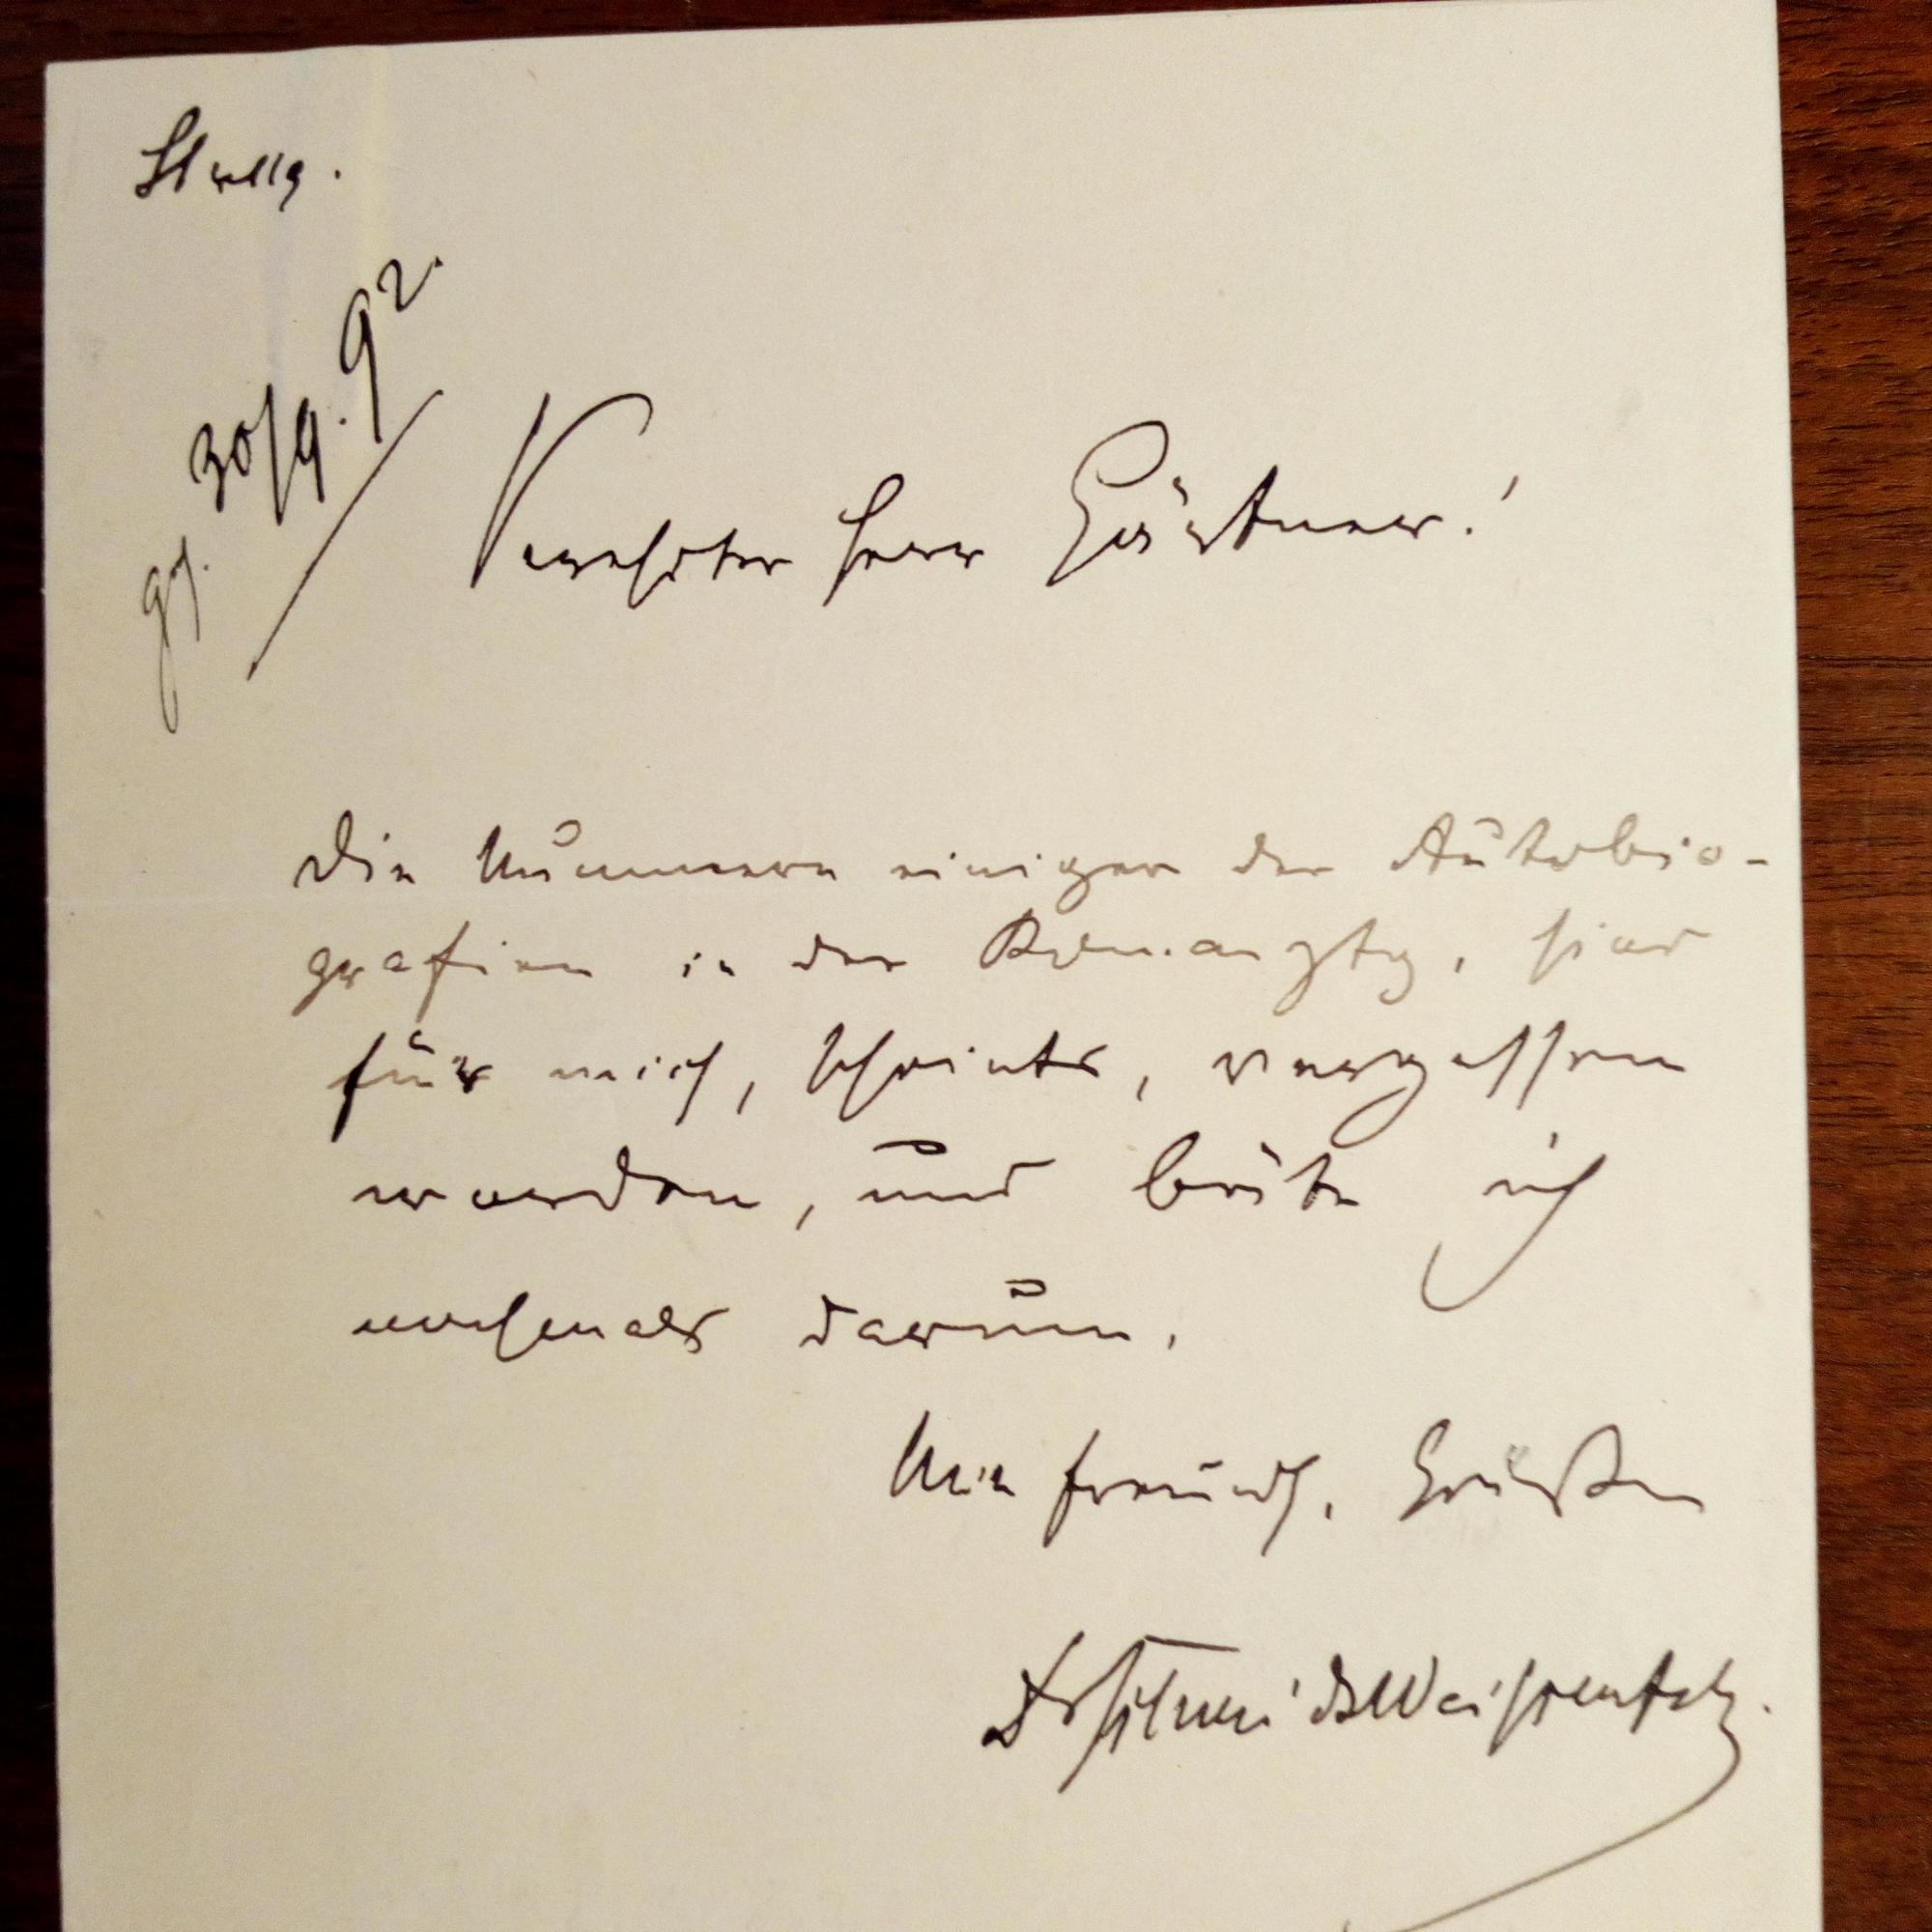 30/9. 92.
Verehrter Herr Gärtner!
Die Nummern einiger der Autobio-
grafien in der Romanztg. sind
für mich, scheints, vergessen
worden, und bäte ich
nochmals darum.
Mit freundl. Grüßen
Dr Schmidt Weißenfels.